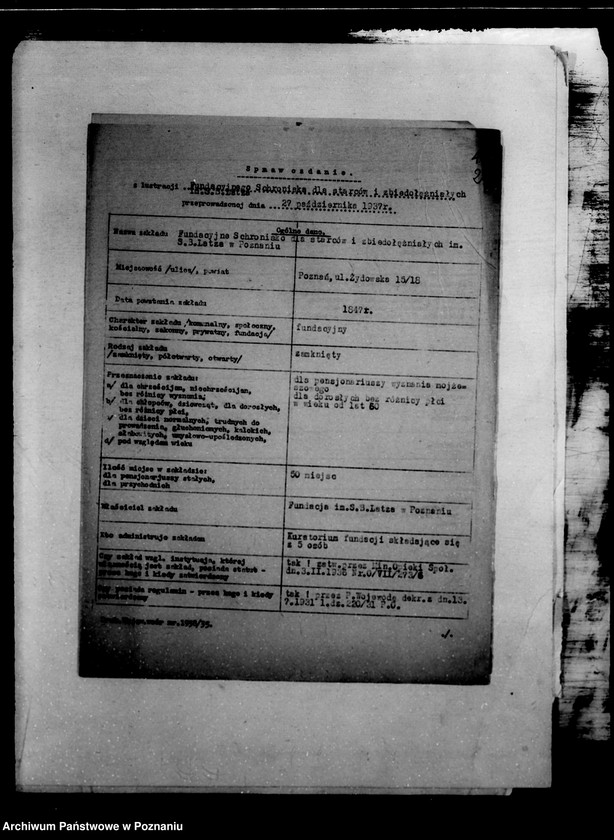 Sprawozdanie.
z lustracji Fundacyjnego Schroniska dla starców i zbiedołężniałych
im.S.B.Latza
przeprowadzonej dnia 27 października 1937r.
Ogólne dane.
Nazwa zakładu: Fundacyjne Schronisko dla starców i zbiedołężniałych im.
S.B.Latza w Poznaniu
Miejscowość /ulica/, powiat
Poznań, ul.Żydowska 15/18
Data powstania zakładu
1847r.
Charakter zakładu /komunalny, społeczny,
kościelny, zakonny, prywatny, fundacja/
fundacyjny
Rodzaj zakładu
/zamknięty, półotwarty, otwarty/
zamknięty
Przeznaczenie zakładu:
a/ dla chrześcijan, niechrześcijan,
bez różnicy wyznania;
b/ dla chłopców, dziewcząt, dla dorosłych,
bez różnicy płci,
c/ dla dzieci normalnych, trudnych do
prowadzenia, głuchoniemych, kalekich,
umysłowo-upośledzonych,
d/ pod względem wieku
dla pensjonariuszy wyznania mojże-
szowego
dla dorosłych bez różnicy płci
w wieku od lat 60
Ilość miejsc w zakładzie:
dla pensjonarjuszy stałych,
dla przychodnich
50 miejsc
Właściciel zakładu
Fundacja im.S.B.Latza w Poznaniu
Kto administruje zakładem
Kuratorium fundacji składające się
z 5 osób
Czy zakład wzgl. instytucja, której
własnością jest zakład, posiada statut -
przez kogo i kiedy zatwierdzony
tak ! zatw.przez Min.Opieki Społ.
dn.3.II.1936 Nr.O/VII/273/6
Czy posiada regulamin - przez kogo i kiedy
zatwierdzony
tak ! przez P.Wojewodę dekr.z dn.13.
7.1931 l.dz.220/31 P.O.
nr.1958/35.
./.
Archiwum Państwowe w Poznaniu